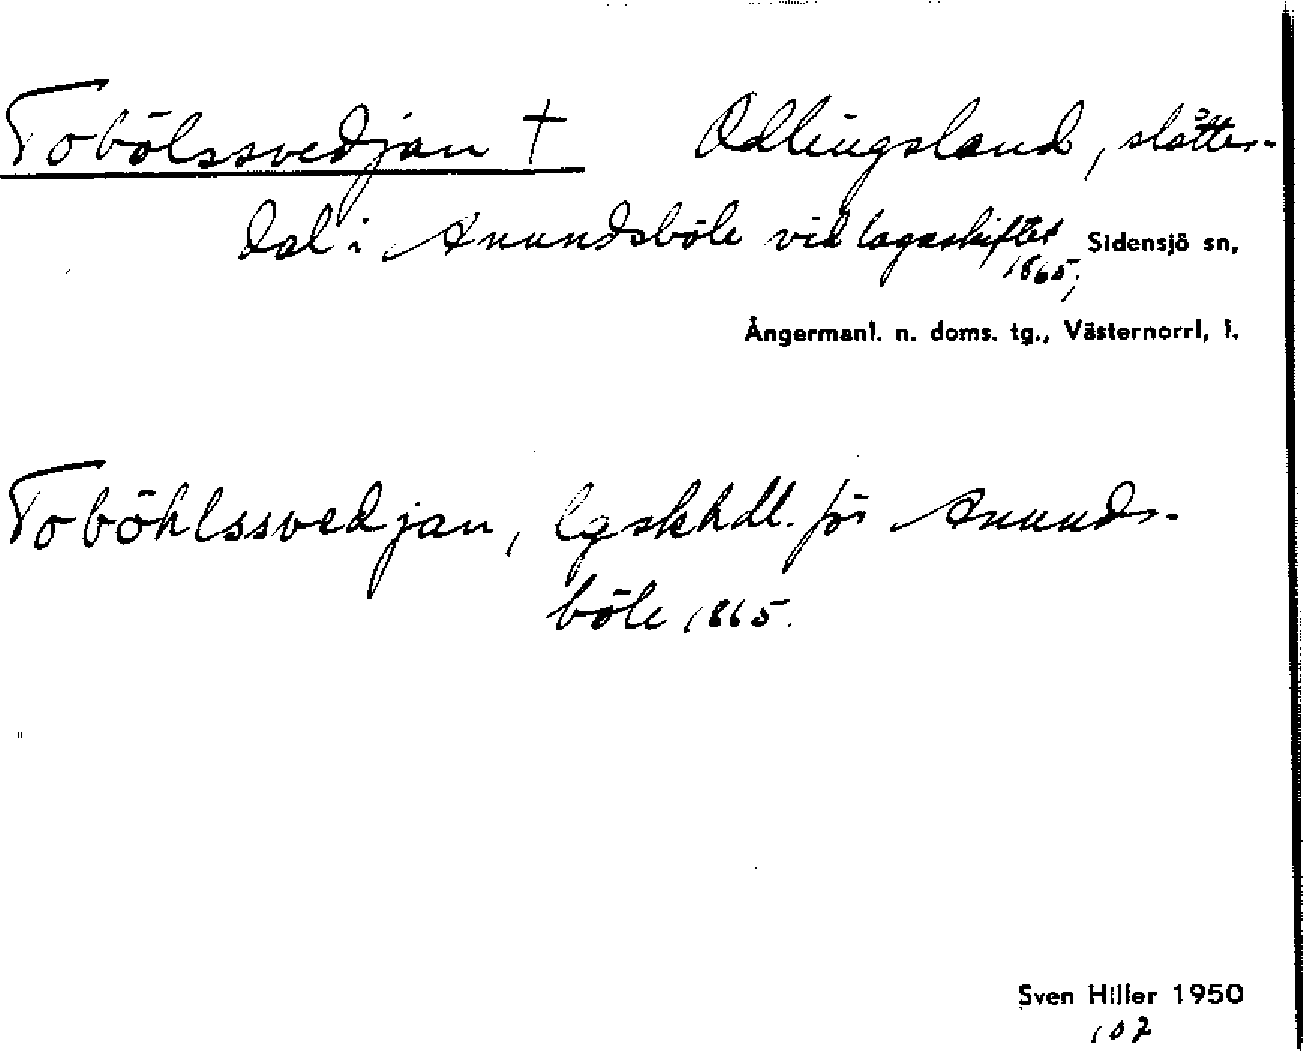 Tobölssvedjan † Odlingsland, slåtter-
dal i Anundsböle vid lagaskiftet Sidensjö sn,
1865;
Ångermanl. n. doms. tg., Västernorrl. l.
Toböhlssvedjan, lgskhdl. för Anunds-
böle 1865.
Sven Hiller 1950
107